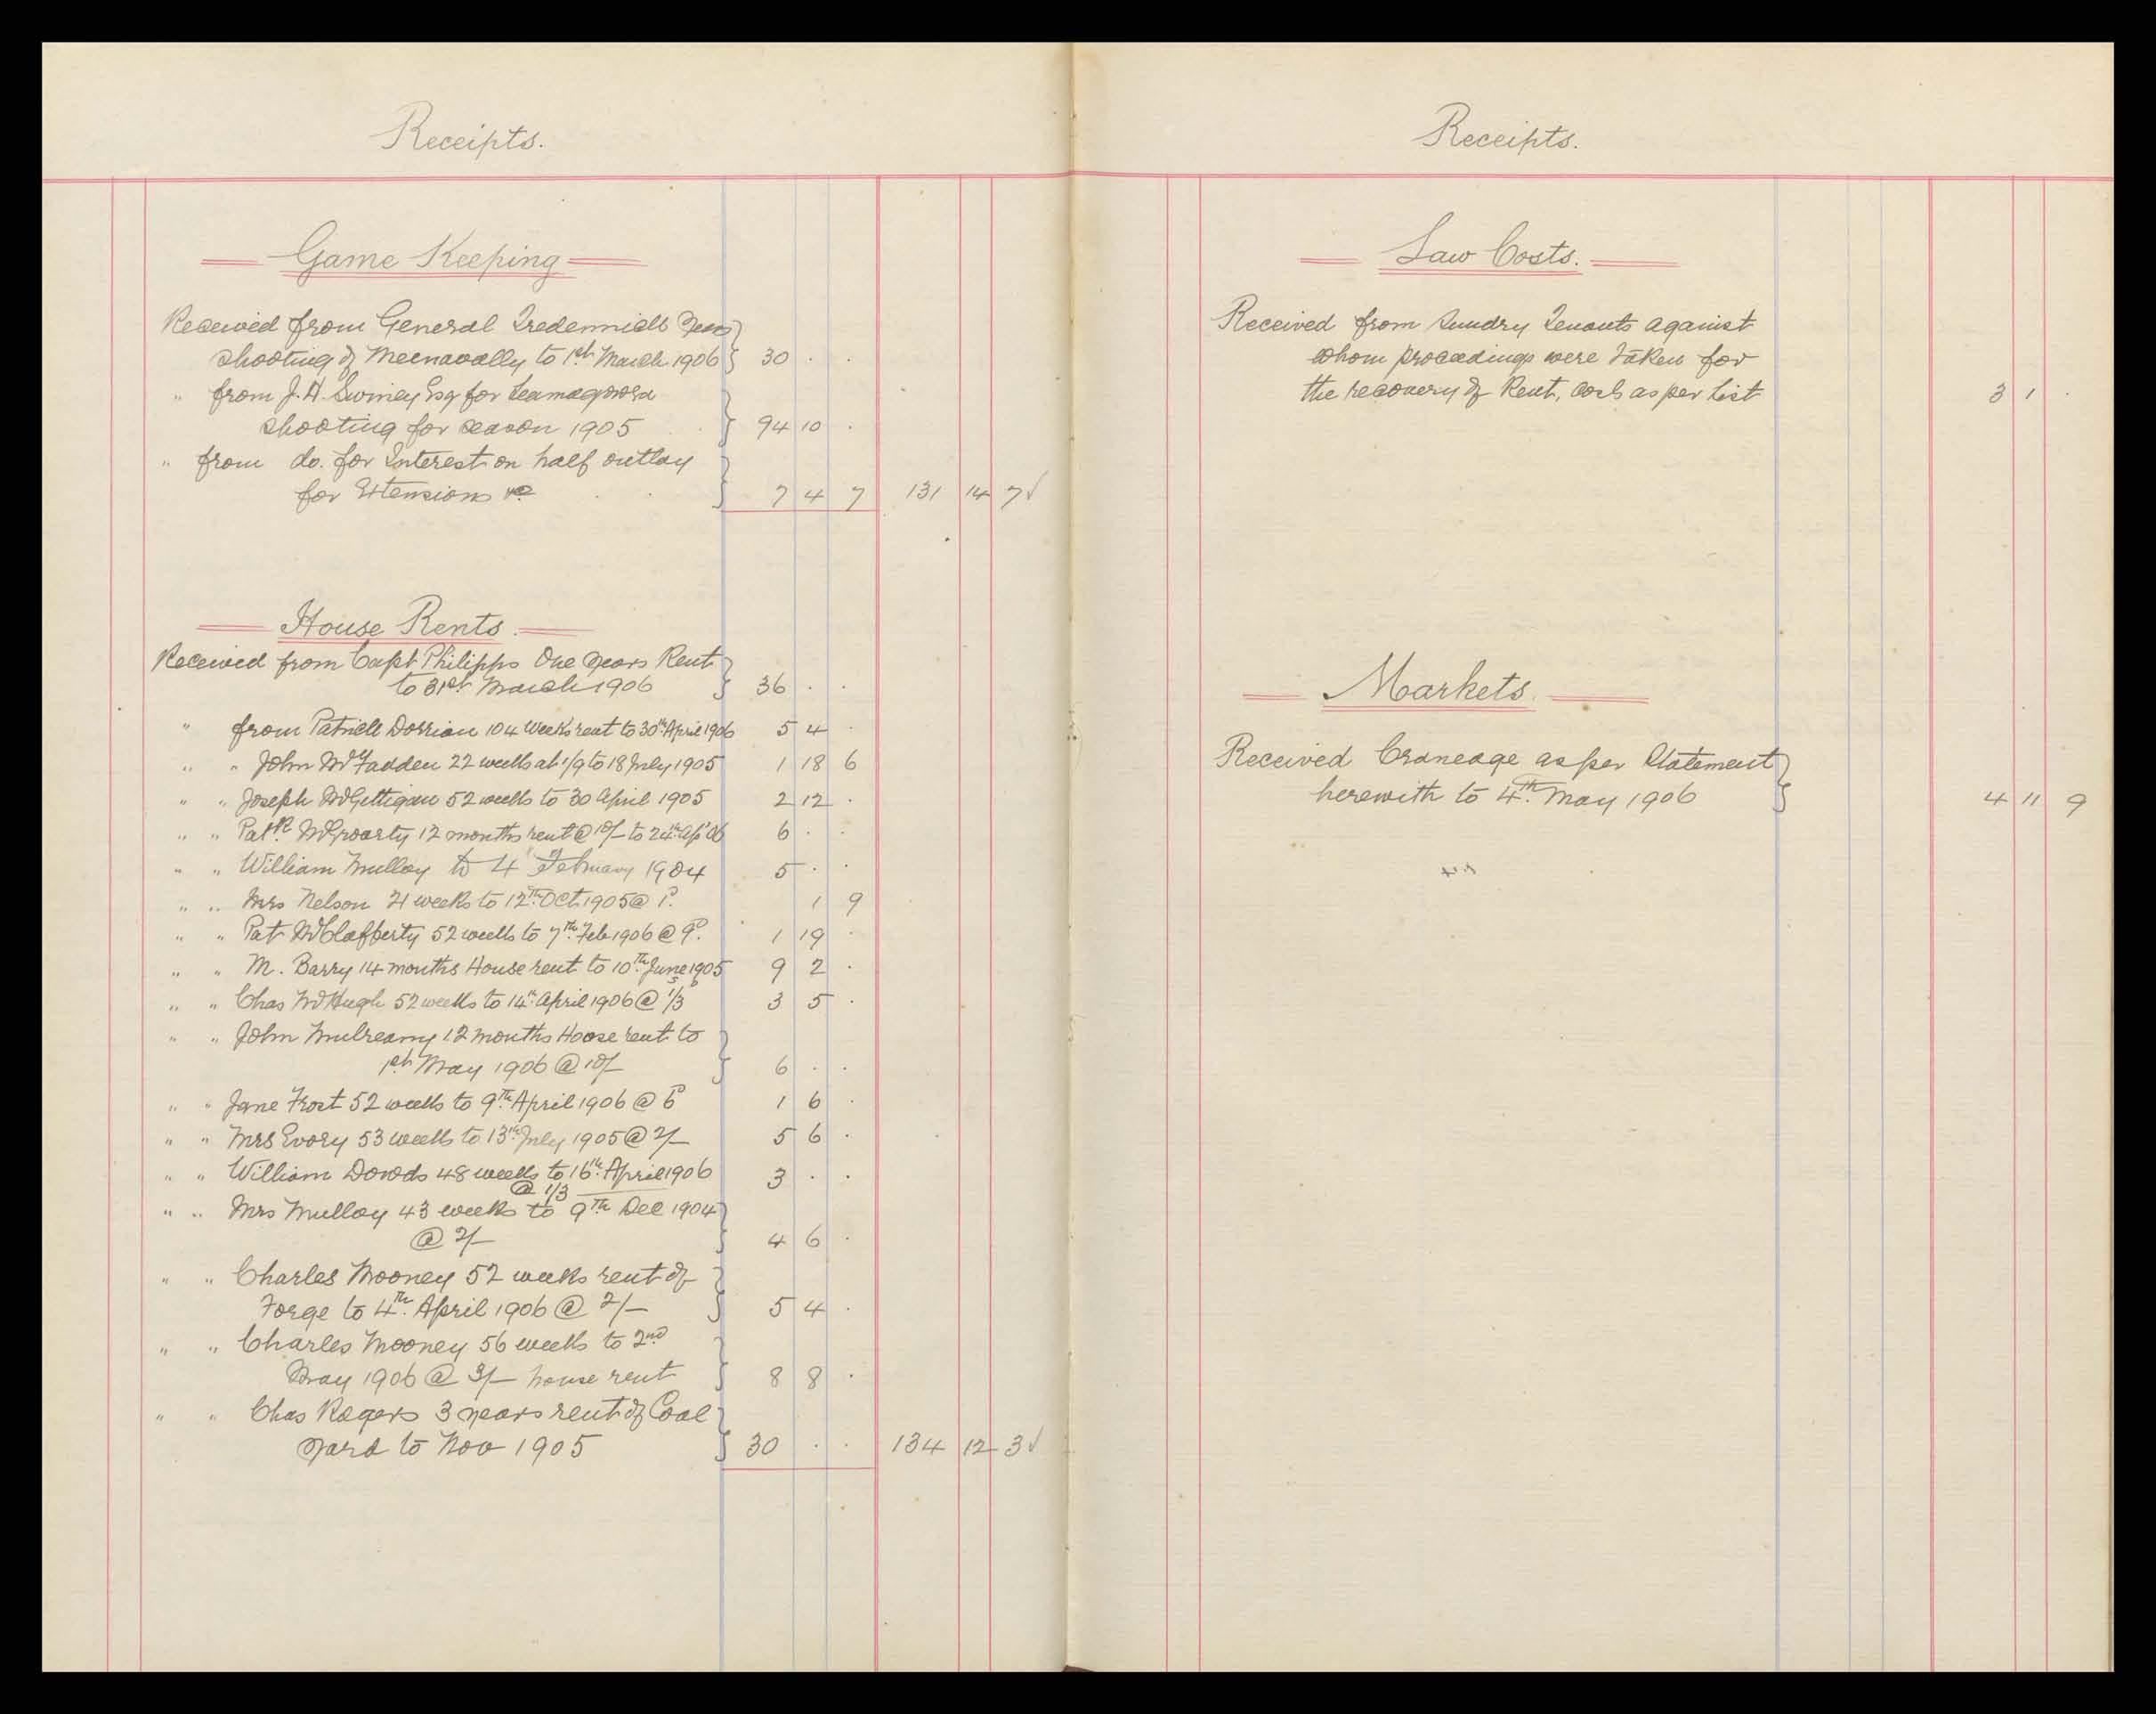 Receipts.
Game Keeping
Received from General Tredennick Years
shooting of Meenavally to 1st March 1906 30 . .
" from J. A. Swiney Esq for
shooting for season 1905 94 10 .
" from do. for Interest on half outlay
for Extensions &c 7 4 7 131 14 7 ✓
House Rents
Received from Capt Philipps One Years Rent
to 31st March 1906 36 . .
" from Patrick Dorrian 104 Weeks rent to 30th April 1906 5 4 .
" " John McFadden 22 weeks at 1/9 to 18 July 1905 1 18 6
" " Joseph McGettigan 52 weeks to 30 April 1905 2 12 .
" " Patk McGroarty 12 months rent @ 10/- to 24th Ap '06 6 . .
" " William Mulloy to 4 February 1904 5 . .
" " Mrs Nelson 21 weeks to 12th Oct 1905 @ 1d. 1 9
" " Pat McClafferty 52 weeks to 7th Feb 1906 @ 9d. 1 19 .
" " M. Barry 14 months House rent to 10th June 1905 9 2 .
" " Chas McHugh 52 weeks to 14th April 1906 @ 1/3 3 5 .
" " John Mulreany 12 months House rent to
1st May 1906 @ 10/- 6 . .
" " Jane Frost 52 weeks to 9th April 1906 @ 6d 1 6 .
" " Mrs Ivory 53 weeks to 13th July 1905 @ 2/- 5 6 .
" " William Dowds 48 weeks to 16th April 1906 3 . .
@ 1/3
" " Mrs Mulloy 43 weeks to 9th Dec 1904
@ 2/- 4 6 .
" " Charles Mooney 52 weeks rent of
Forge to 4th April 1906 @ 2/- 5 4 .
" " Charles Mooney 56 weeks to 2nd
May 1906 @ 3/- house rent 8 8 .
" " Chas Rogers 3 years rent of Coal
yard to Nov 1905 30 . . 134 12 3 ✓
Receipts.
Law Costs.
Received from Sundry Tenants against
whom proceedings were taken for
the recovery of Rent, Costs as per List 3 1 .
Markets.
Received Craneage as per Statement
herewith to 4th May 1906 4 11 9